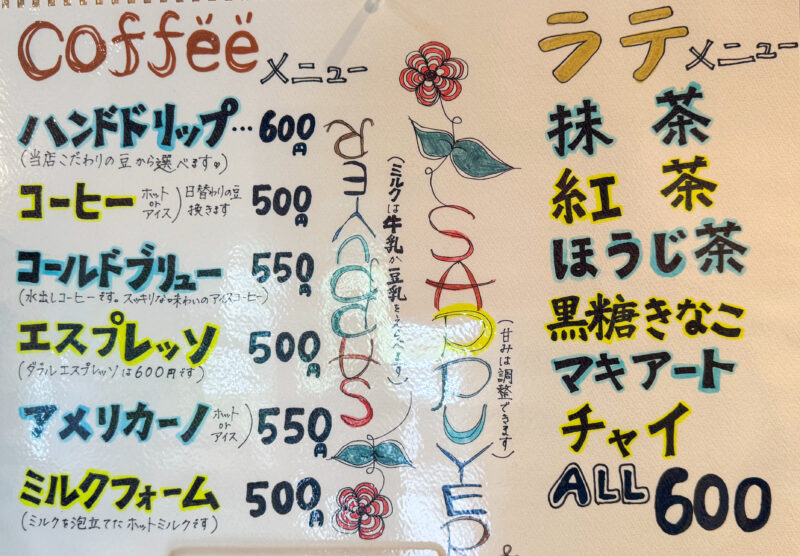 Coffëë メニュー
ハンドドリップ…600円
(当店こだわりの豆から選べます♡)
コーヒー ホット or アイス) 日替わりの豆挽きます 500円
コールドブリュー 550円
(水出しコーヒーです。スッキリな味わいのアイスコーヒー)
エスプレッソ 500円
(ダブルエスプレッソは600円です)
アメリカーノ ホット or アイス) 550円
ミルクフォーム 500円
(ミルクを泡立てたホットミルクです)
(ミルクは牛乳か豆乳をえらべます)
(甘みは調整できます)
ラテメニュー
抹茶
紅茶
ほうじ茶
黒糖きなこ
マキアート
チャイ
ALL 600